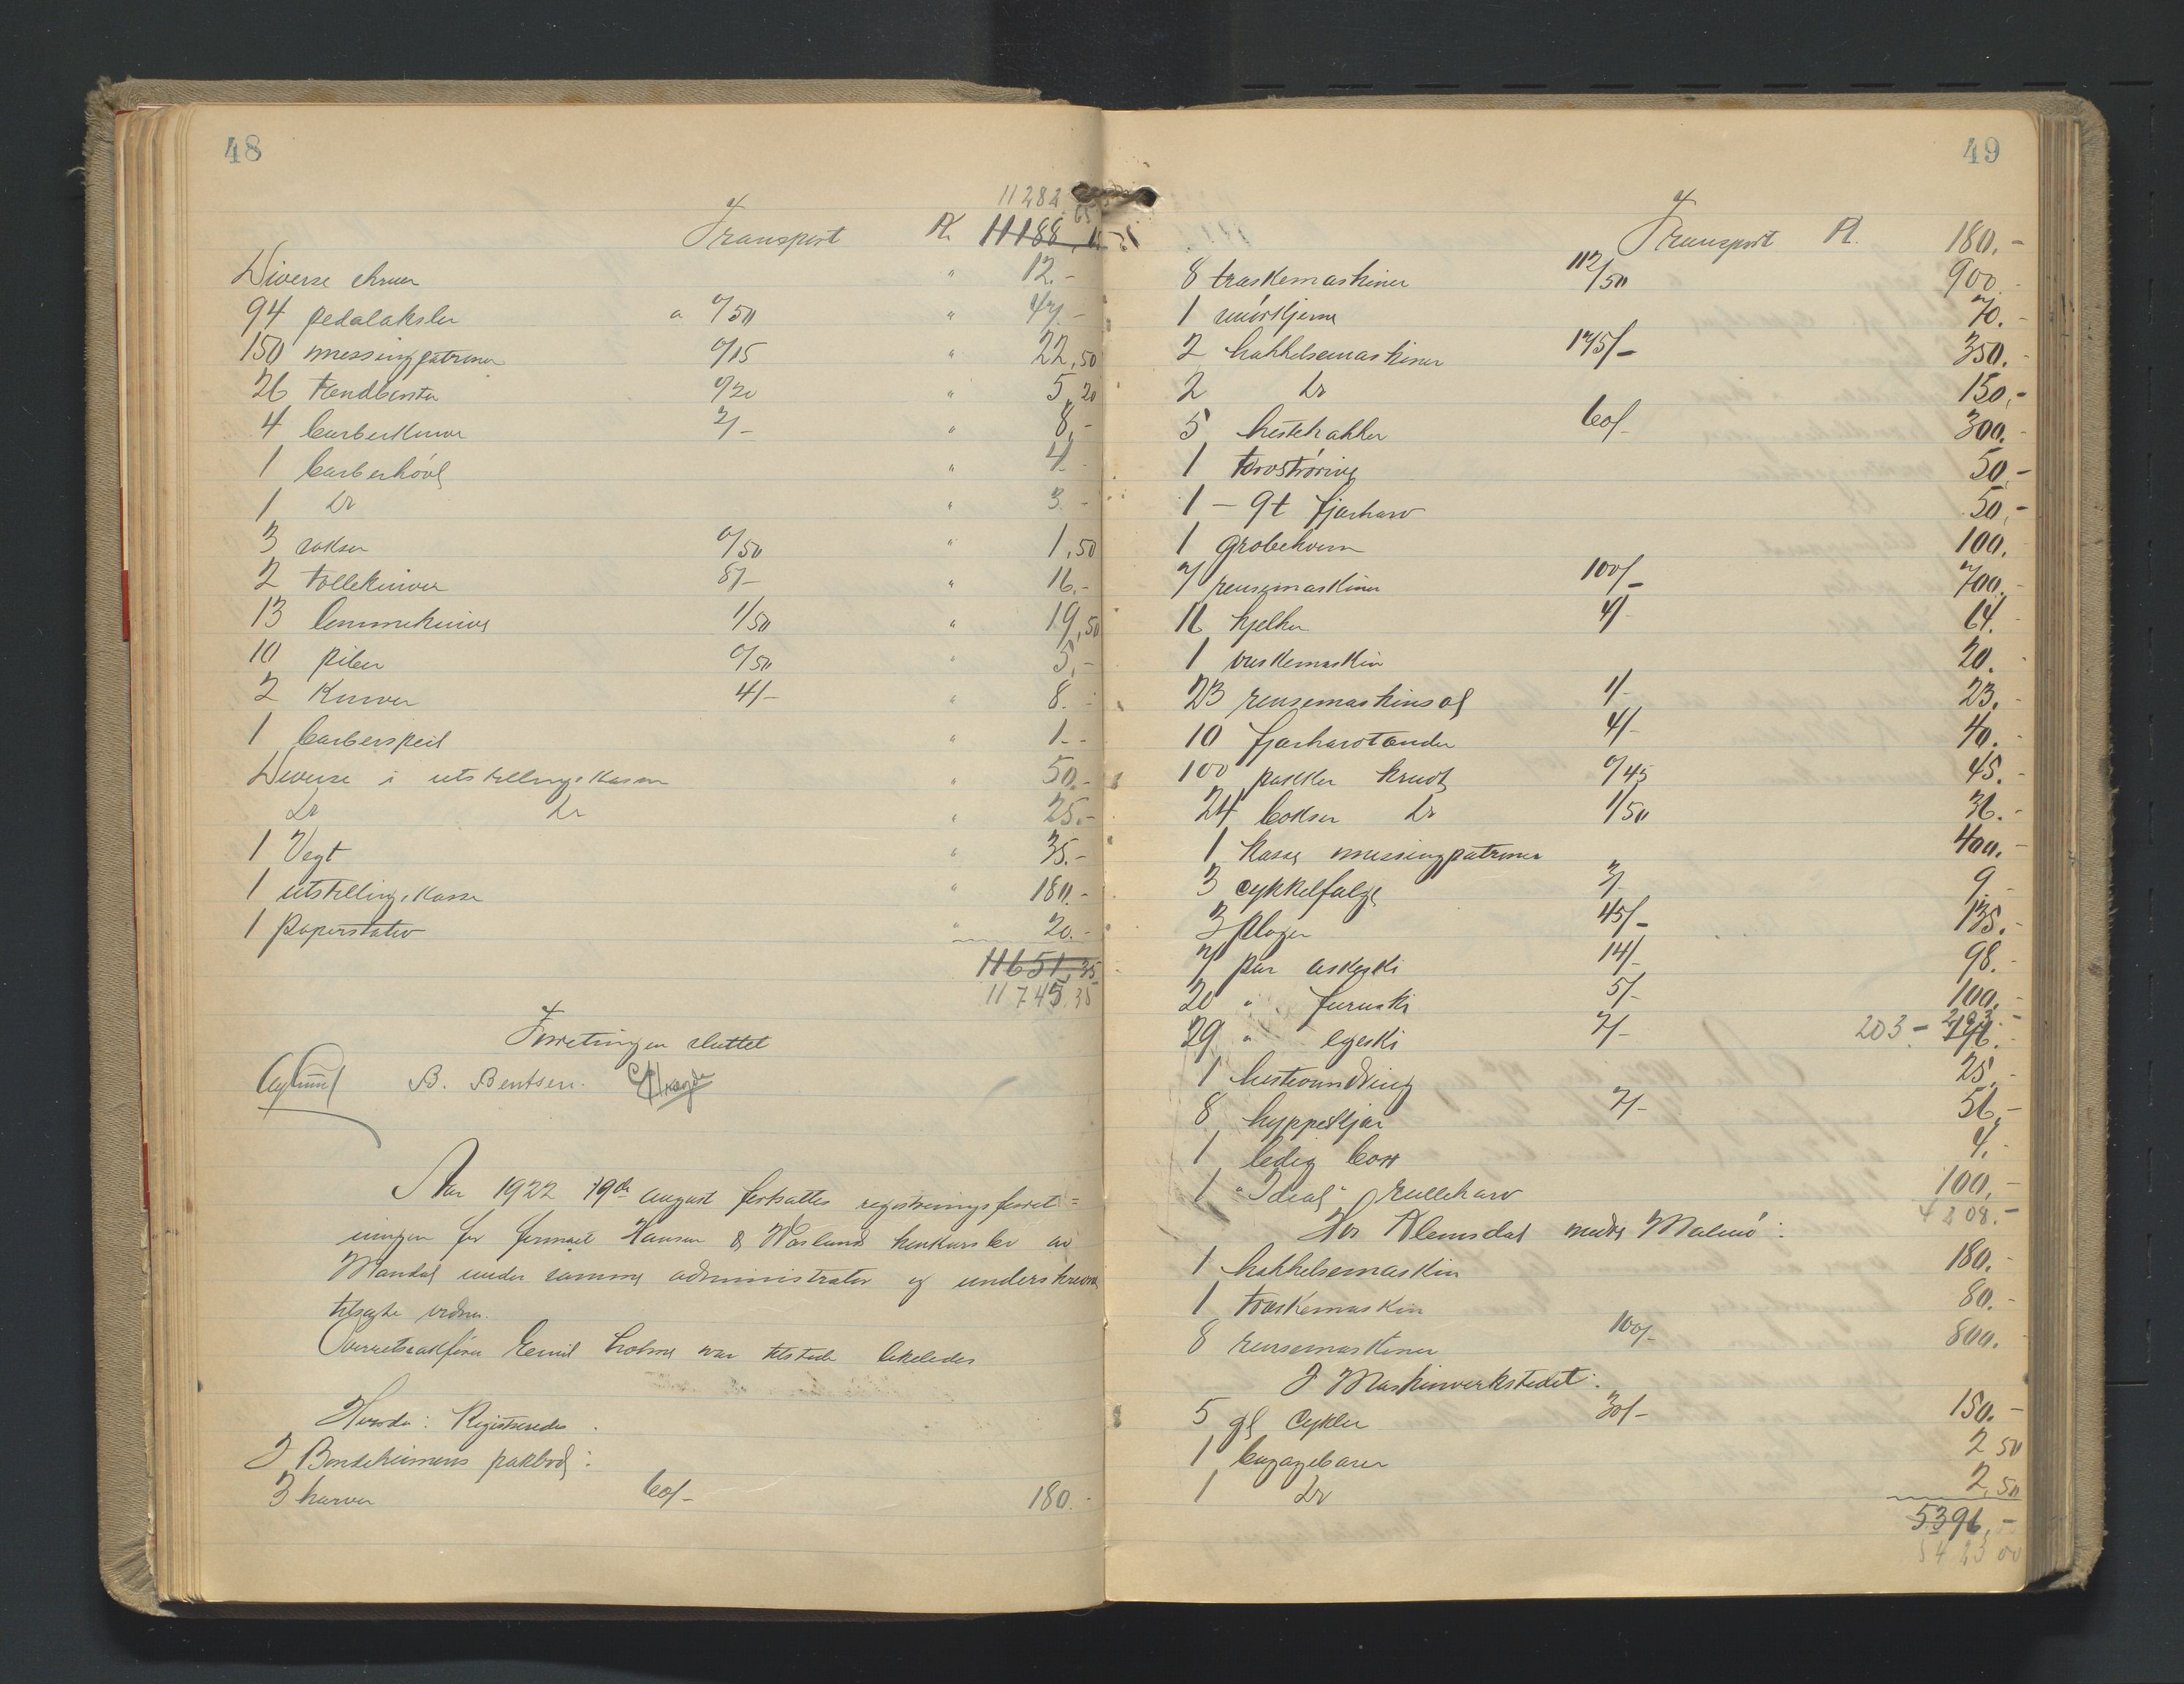 48
11282,65
Transport Kr. 11188,65
Diverse skruer " 12.-
94 pedalaksler a 0/50 " 47.-
150 messingpatroner 0/15 " 22,50
26 tandbørster 0/20 " 5,20
4 barberkniver 2/- " 8,-
1 barberhøvl " 4.-
1 Do " 3.-
3 sakser 0/50 " 1,50
2 tollekniver 8/- " 16.-
13 lommekniver 1/50 " 19,50
10 piber 0/50 " 5,-
2 Kurver 4/- " 8.-
1 barberspeil " 1.-
Diverse i utstillingskassen " 50.-
Do Do " 25.-
1 Vegt " 35.-
1 utstillingskasse " 180.-
1 papirstativ " 20.-
11651,35
11745,35
Forretningen sluttet
B. Bentsen.
Aar 1922 19de august fortsattes registreringsforret=
ningen for firmaet Hansen & Haaland konkursbo av
Mandal under samme administrator og underskrevne
tilsagte vidner.
Overretssakfører Emil Lolma var tilstede likeledes
Hvorda: Registreredes.
I Bondeheimens pakbod:
3 harver 60/- 180.-
49
Transport Kr. 180.-
8 træskemaskiner 112/50 900.-
1 smørkjerne 70.-
2 hakkelsemaskiner 175/- 350.-
2 Do 150,-
5 hestehakker 60/- 300.-
1 torvstrøriver 50,-
1 - 9t fjærharv 50,-
1 grøbekvern 100.
7 rensemaskiner 100/- 700.-
16 kjelker 4/- 64.-
1 vaskemaskin 20.-
23 rensemaskinsol 1/- 23.-
10 fjærharvtænder 4/- 40.-
100 pakker krudt 0/45 45.-
24 bokser Do 1/50 36.-
1 kasse messingpatroner 400.-
3 cykkelfælge 3/- 9.-
3 Ploger 45/- 135.-
7 par askeski 14/- 98.-
20 " furuski 5/- 100.-
29 " egeski 7/- 203.- 203.-
1 hestevandring 25.-
8 hyppeskjær 7/- 56,-
1 ledig bor 4.-
1 "Ideal" rulleharv 100,-
4208.-
Hos Klemsdal nedre Malmø:
1 hakkelsemaskin 180.-
1 træskemaskin 80.-
8 rensemaskiner 100/- 800.
I Maskinverkstedet:
5 gl Cykler 30/- 150.-
1 bagagebærer 2,50
1 Do 2,50
5396,-
5423 00